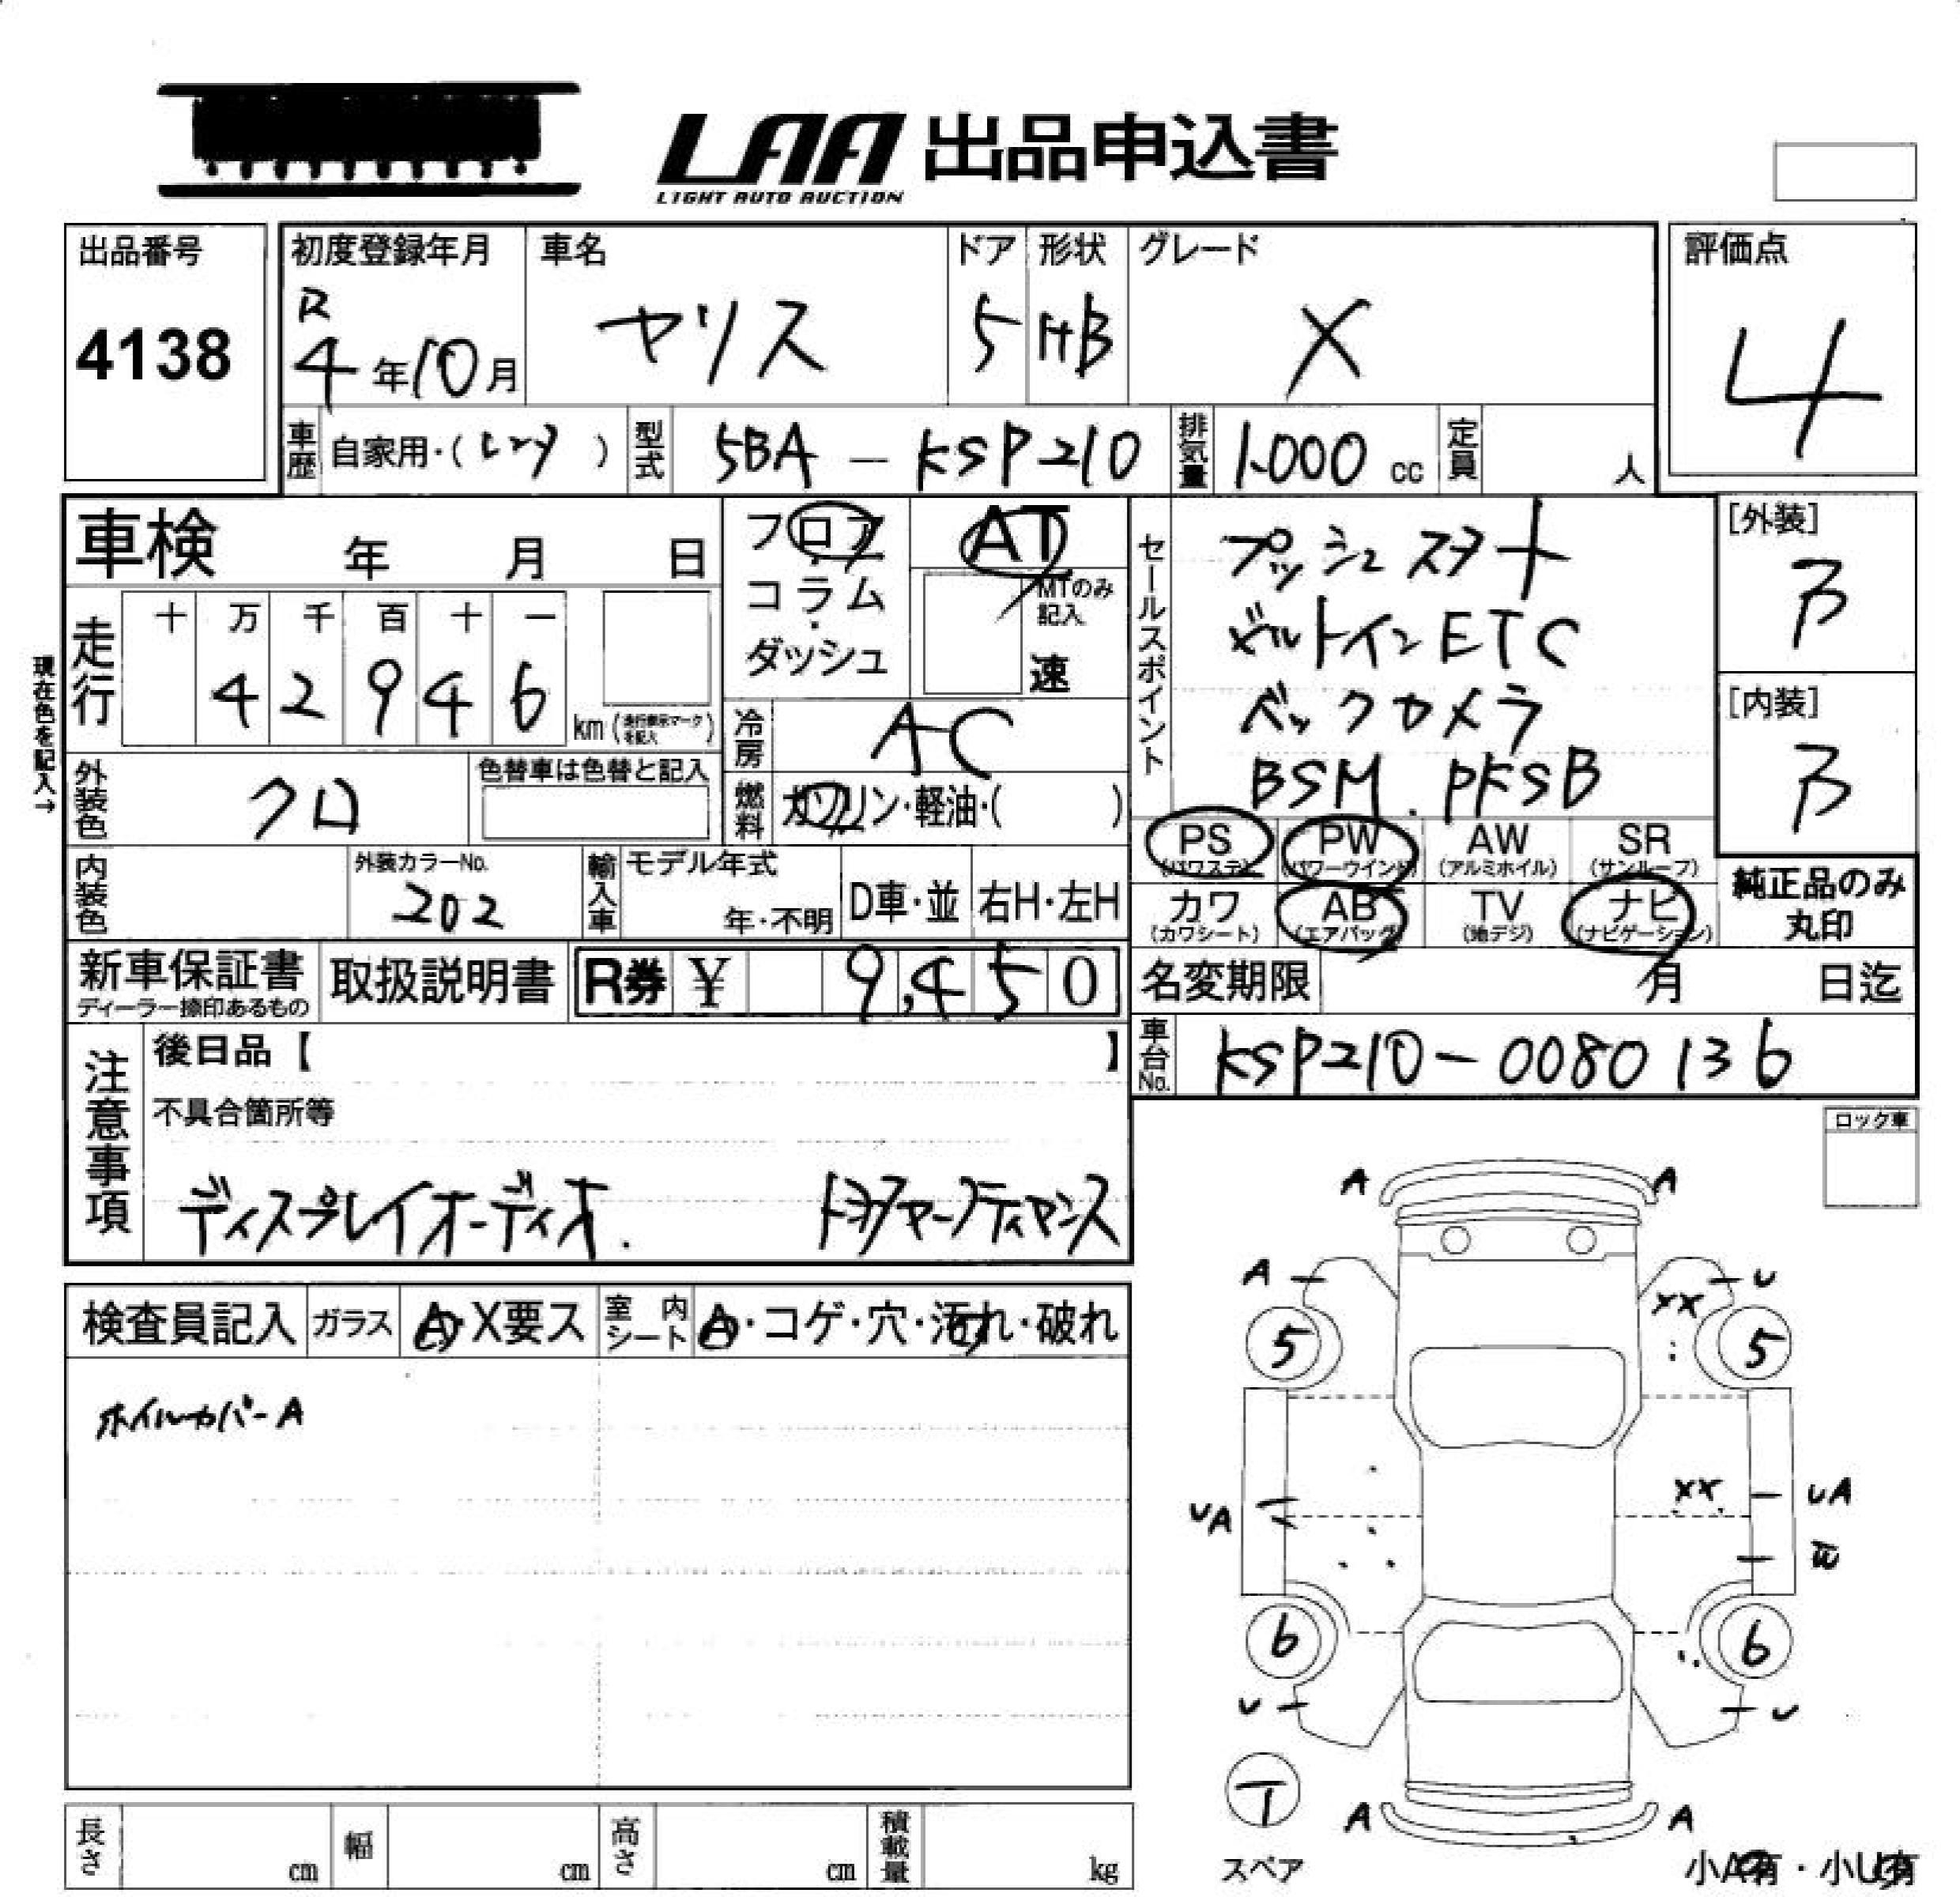 LAA 出品申込書
LIGHT AUTO AUCTION
出品番号
4138
初度登録年月
R
4年10月
車名
ヤリス
ドア
5
形状
HB
グレード
X
評価点
4
車歴 自家用・(レンタ)
型式 5BA - KSP210
排気量 1.000 cc
定員 人
車検 年 月 日
フロア・コラム・ダッシュ
AT
MTのみ記入
速
セールスポイント
プッシュスタート
ビルトインETC
バックカメラ
BSM. PKSB
[外装]
B
[内装]
B
現在色を記入→
走行 十 万 千 百 十 一
4 2 9 4 6
km (走行表示マークを記入)
冷房 AC
外装色 クロ
色替車は色替と記入
燃料 ガソリン・軽油・( )
PS (パワステ)
PW (パワーウインド)
AW (アルミホイル)
SR (サンルーフ)
カワ (カワシート)
AB (エアバッグ)
TV (地デジ)
ナビ (ナビゲーション)
純正品のみ
丸印
内装色
外装カラーNo.
202
輸入車
モデル年式
年・不明
D車・並
右H・左H
新車保証書
ディーラー捺印あるもの
取扱説明書
R券 ¥ 9,450
名変期限 月 日迄
車台No. KSP210-0080136
注意事項
後日品【 】
不具合箇所等
ディスプレイオーディオ.
ロック車
検査員記入
ガラス A・X要ス
室内シート A・コゲ・穴・汚れ・破れ
ホイルカバーA
A A
A U
XX
5 5
XX
UA UA
W
6 6
U U
T
スペア
A A
小A有・小U有
長さ cm
幅 cm
高さ cm
積載量 kg